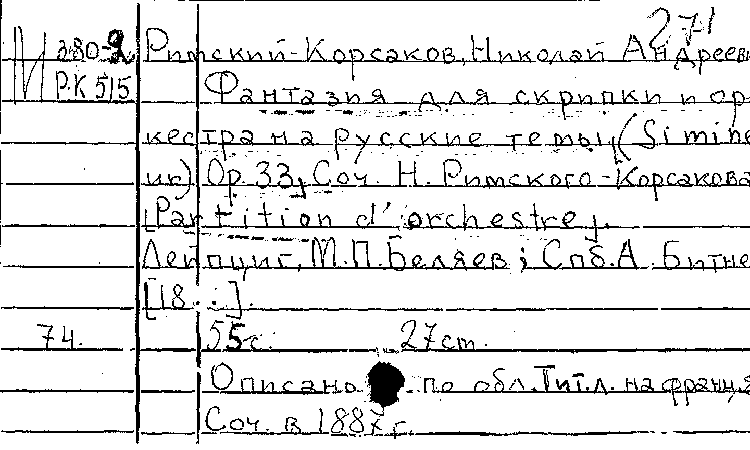 271
М 380-2 Римский-Корсаков, Николай Андреев
Р.К 515 Фантазия для скрипки и ор
кестра на русские темы, (Si mine
ur) Op. 33, Соч. Н. Римского-Корсакова
[Partition d'orchestre].
Лейпциг, М.П.Беляев; Спб. А. Битне
[18..].
74. 55 с. 27 cm.
Описано по обл. Тит.л. на франц. я
Соч. в 1887 г.